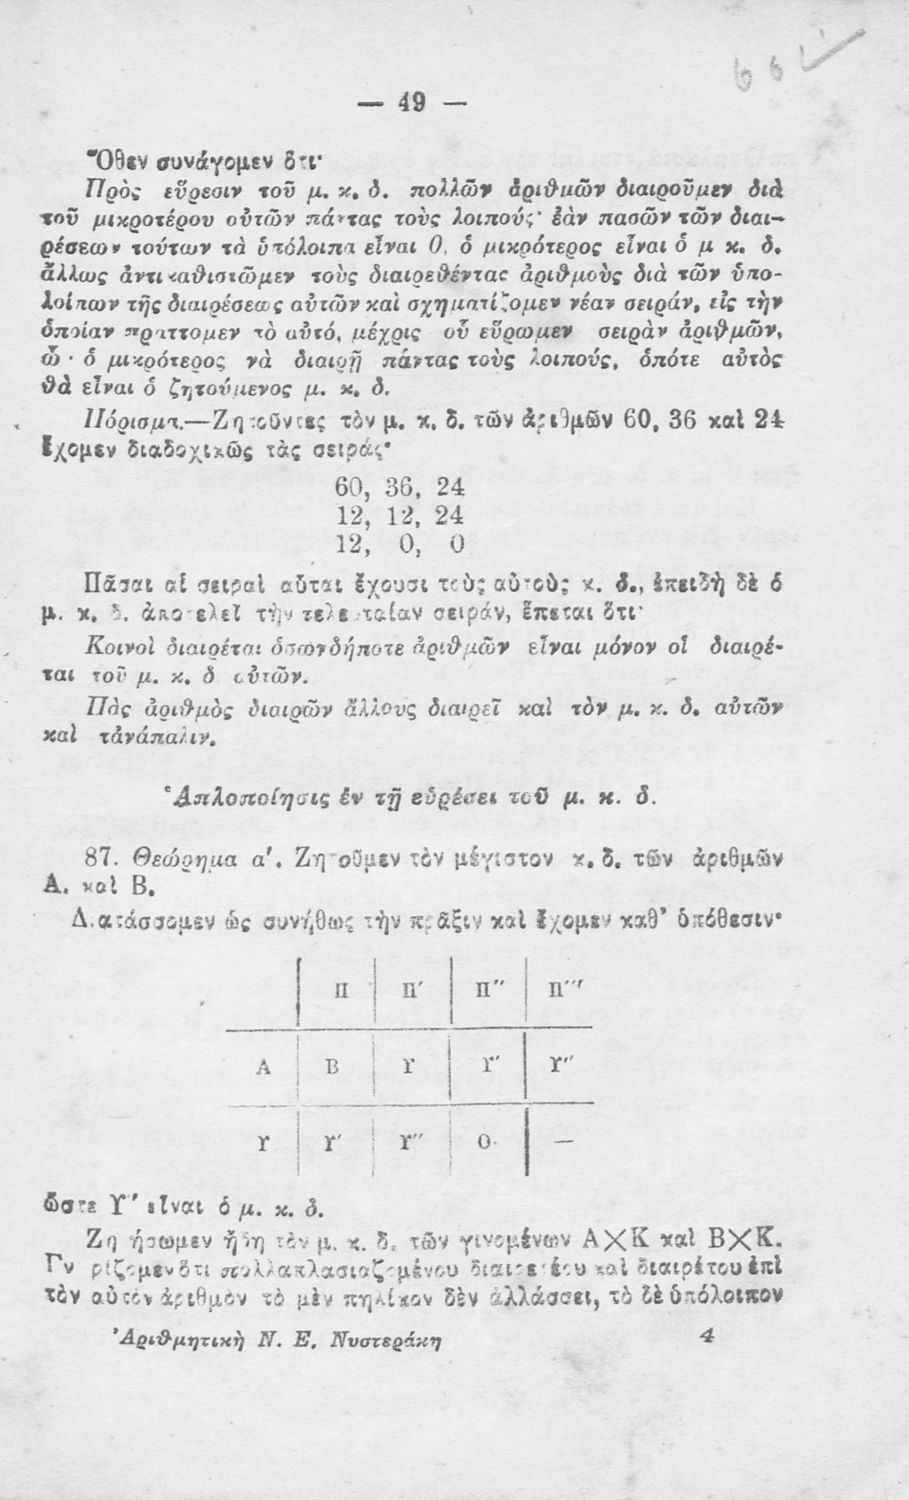 — 49 —
Ὅθεν συνάγομεν ὅτι·
Πρὸς εὕρεσιν τοῦ μ. κ. δ. πολλῶν ἀριθμῶν διαιροῦμεν διὰ
τοῦ μικροτέρου αὐτῶν πάντας τοὺς λοιπούς· ἐὰν πασῶν τῶν διαι-
ρέσεων τούτων τὰ ὑπόλοιπα εἶναι 0, ὁ μικρότερος εἶναι ὁ μ κ. δ.
ἄλλως ἀντικαθιστῶμεν τοὺς διαιρεθέντας ἀριθμοὺς διὰ τῶν ὑπο-
λοίπων τῆς διαιρέσεως αὐτῶν καὶ σχηματίζομεν νέαν σειράν, εἰς τὴν
ὁποίαν πράττομεν τὸ αὐτό, μέχρις οὗ εὕρωμεν σειρὰν ἀριθμῶν,
ὁ μικρότερος νὰ διαιρῇ πάντας τοὺς λοιπούς, ὁπότε αὐτὸς
θὰ εἶναι ὁ ζητούμενος μ. κ. δ.
Πόρισμα.—Ζητοῦντες τὸν μ. κ. δ. τῶν ἀριθμῶν 60, 36 καὶ 24
ἔχομεν διαδοχικῶς τὰς σειράς·
60, 36, 24
12, 12, 24
12, 0, 0
Πᾶσαι αἱ σειραὶ αὗται ἔχουσι τοὺς αὐτοὺς κ. δ., ἐπειδὴ δὲ ὁ
μ. κ. δ. ἀποτελεῖ τὴν τελευταίαν σειράν, ἕπεται ὅτι·
Κοινοὶ διαιρέται ὁσωνδήποτε ἀριθμῶν εἶναι μόνον οἱ διαιρέ-
ται τοῦ μ. κ. δ αὐτῶν.
Πᾶς ἀριθμὸς διαιρῶν ἄλλους διαιρεῖ καὶ τὸν μ. κ. δ. αὐτῶν
καὶ τἀνάπαλιν.
Ἁπλοποίησις ἐν τῇ εὑρέσει τοῦ μ. κ. δ.
87. Θεώρημα α'. Ζητοῦμεν τὸν μέγιστον κ. δ. τῶν ἀριθμῶν
Α. καὶ Β.
Διατάσσομεν ὡς συνήθως τὴν πρᾶξιν καὶ ἔχομεν καθ' ὑπόθεσιν·
Π Π' Π'' Π'''
Α Β Υ Υ' Υ''
Υ Υ' Υ'' 0 —
ὥστε Υ'' εἶναι ὁ μ. κ. δ.
Ζητήσωμεν ἤδη τὸν μ. κ. δ. τῶν γινομένων Α×Κ καὶ Β×Κ.
Γνωρίζομεν ὅτι πολλαπλασιαζομένου διαιρετέου καὶ διαιρέτου ἐπὶ
τὸν αὐτὸν ἀριθμὸν τὸ μὲν πηλίκον δὲν ἀλλάσσει, τὸ δὲ ὑπόλοιπον
Ἀριθμητικὴ Ν. Ε. Νυστεράκη 4